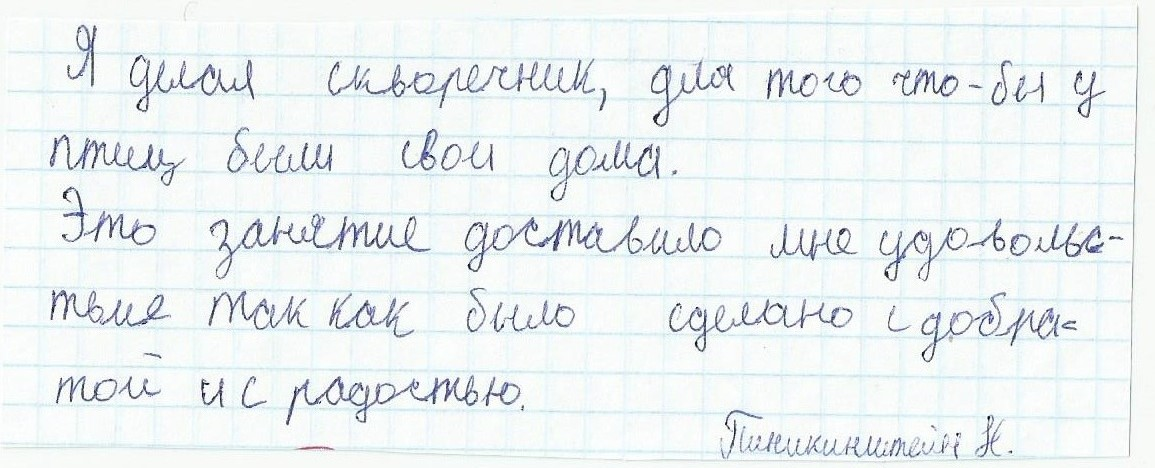 Я делал скворечник, для того что-бы у
птиц были свои дома.
Это занятие доставило мне удовольс-
твие так как было сделано с добра-
той и с радостью.
Пиникинштейн Н.